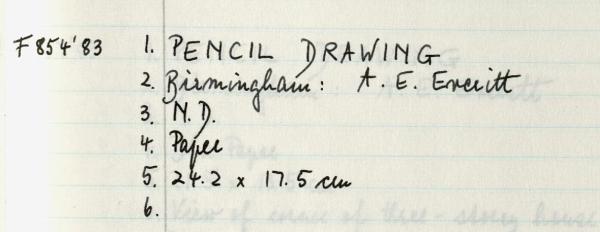 F854'83 1. PENCIL DRAWING
2. Birmingham: A. E. Everitt
3. N.D.
4. Paper
5. 24.2 x 17.5 cm
6.